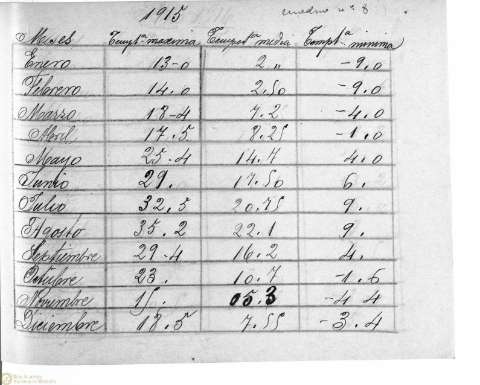 1915
cuadro nº 8
Meses Tempta maxima Tempta media Tempta minima
Enero 13-0 2 „ -9.0
Febrero 14.0 2.50 -9.0
Marzo 18-4 7.2 -4.0
Abril 17.5 8.25 -1.0
Mayo 25-4 14.7 4.0
Junio 29. 17.50 6.
Julio 32.5 20.75 9.
Agosto 35.2 22.1 9.
Septiembre 29-4 16.2 4.
Octubre 23. 10.7 -1.6
Noviembre 15. 05.3 -4 4
Diciembre 18.5 7.55 -3.4